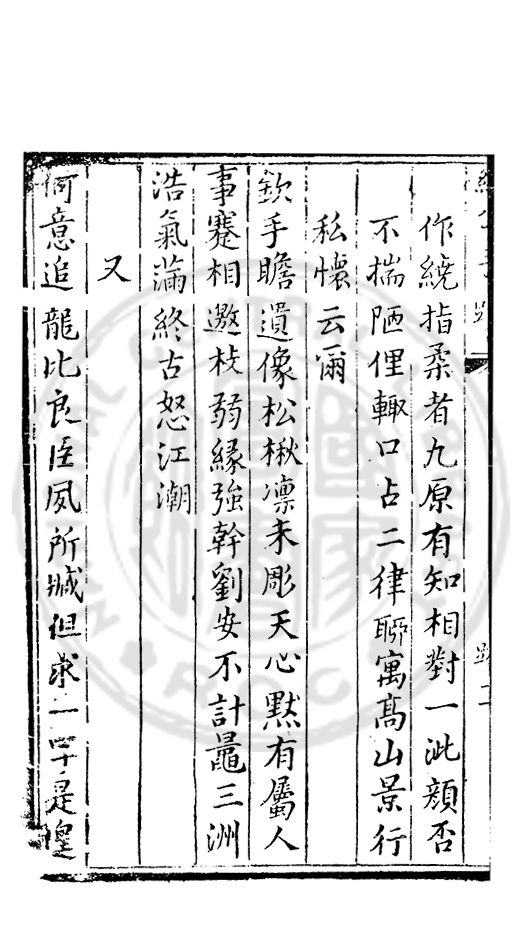 作繞指柔者九原有知相對一泚顔否
不揣陋俚輙口占二律聊寓髙山景行
私懷云爾
欽手瞻遺像松楸凛未彫天心黙有屬人
事蹇相邀枝弱縁強幹劉安不計鼂三洲
浩氣滿終古怒江潮
又
何意追龍比良臣夙所臧但求一是遑